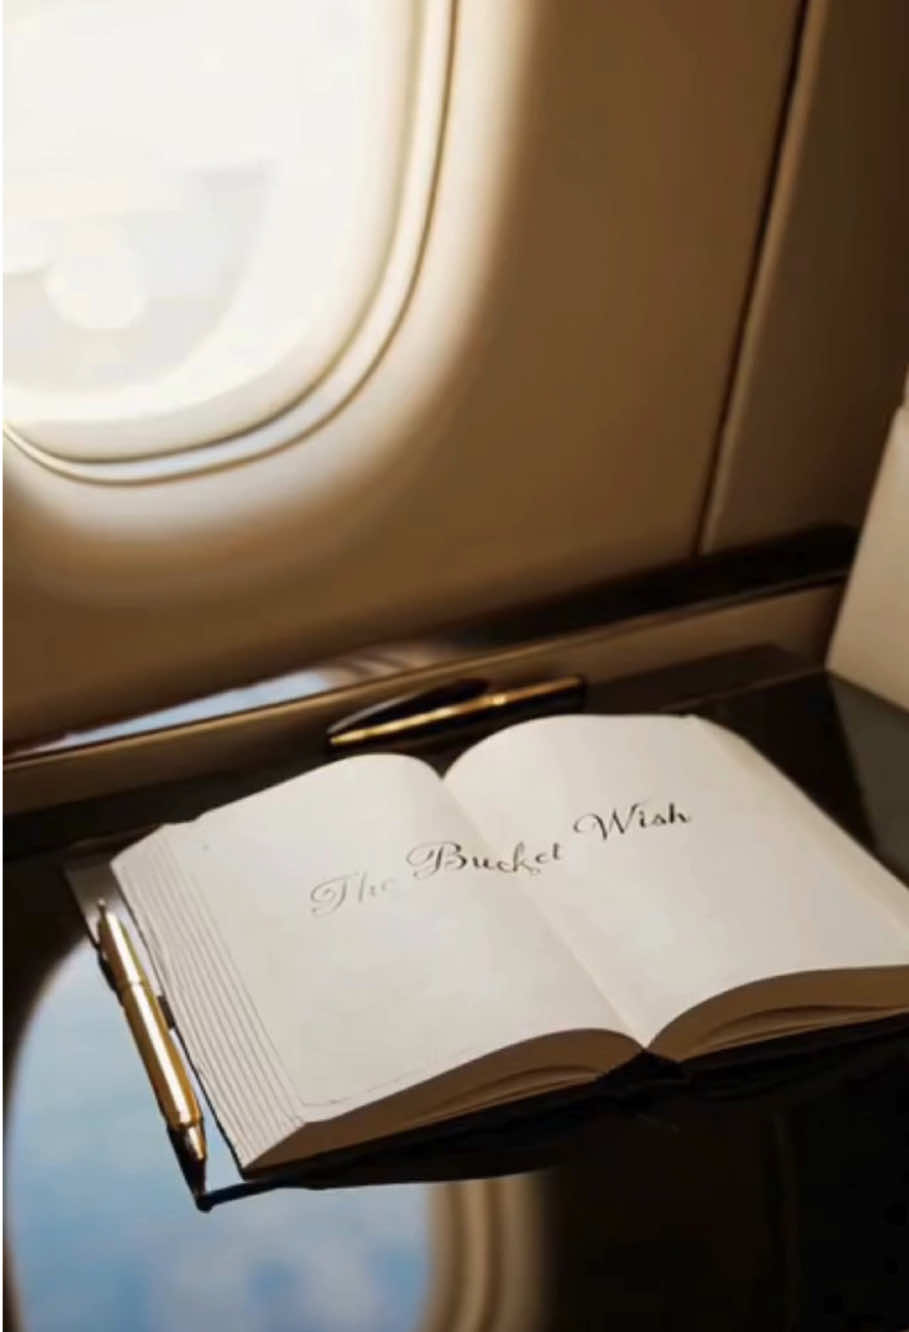 The Bucket Wish